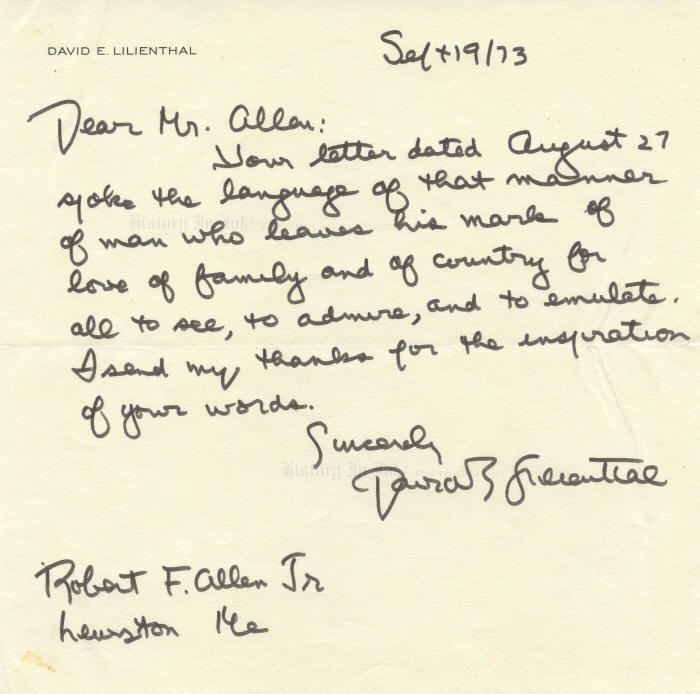 DAVID E. LILIENTHAL
Sept 19/73
Dear Mr. Allen:
Your letter dated August 27
spoke the language of that manner
of man who leaves his mark of
History In Ink
love of family and of country for
all to see, to admire, and to emulate.
I send my thanks for the inspiration
of your words.
Sincerely
History In Ink
David E Lilienthal
Robert F. Allen Jr
Lewiston Me